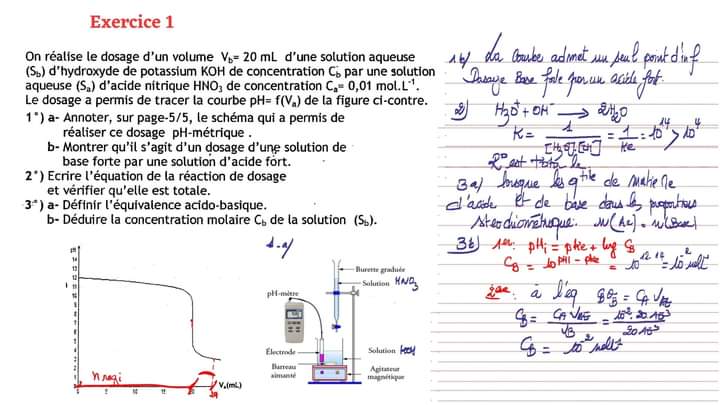 Exercice 1
On réalise le dosage d'un volume V_b= 20 mL d'une solution aqueuse
(S_b) d'hydroxyde de potassium KOH de concentration C_b par une solution
aqueuse (S_a) d'acide nitrique HNO₃ de concentration C_a= 0,01 mol.L⁻¹.
Le dosage a permis de tracer la courbe pH= f(V_a) de la figure ci-contre.
1°) a- Annoter, sur page-5/5, le schéma qui a permis de
réaliser ce dosage pH-métrique .
b- Montrer qu'il s'agit d'un dosage d'une solution de
base forte par une solution d'acide fort.
2°) Ecrire l'équation de la réaction de dosage
et vérifier qu'elle est totale.
3°) a- Définir l'équivalence acido-basique.
b- Déduire la concentration molaire C_b de la solution (S_b).
pH
14
13
12
11
10
9
8
7
6
5
4
3
2
1
0
5
10
15
20
V_a(mL)
1-a/
Burette graduée
Solution HNO₃
pH-mètre
Électrode
Solution KOH
Barreau
aimanté
Agitateur
magnétique
1b/ La courbe admet un seul point d'inf
Dosage Base forte par un acide fort.
2) H₃O⁺ + OH⁻ → 2H₂O
K = 1/[H₃O⁺][OH⁻] = 1/Ke = 10¹⁴ > 10⁴
3a) lorsque les qtité de matière
d'acide et de base dans les proportions
stoechiométrique. n(Ac) = n(Base)
3b) 1er: pHi = pKe + log C_B
C_B = 10^(pHi - pKe) = 10^(12-14) = 10⁻² mol L⁻¹
2ème: à l'éq C_B V_B = C_A V_AE
C_B = C_A V_AE / V_B = 10⁻². 20 10⁻³ / 20 10⁻³
C_B = 10⁻² mol L⁻¹